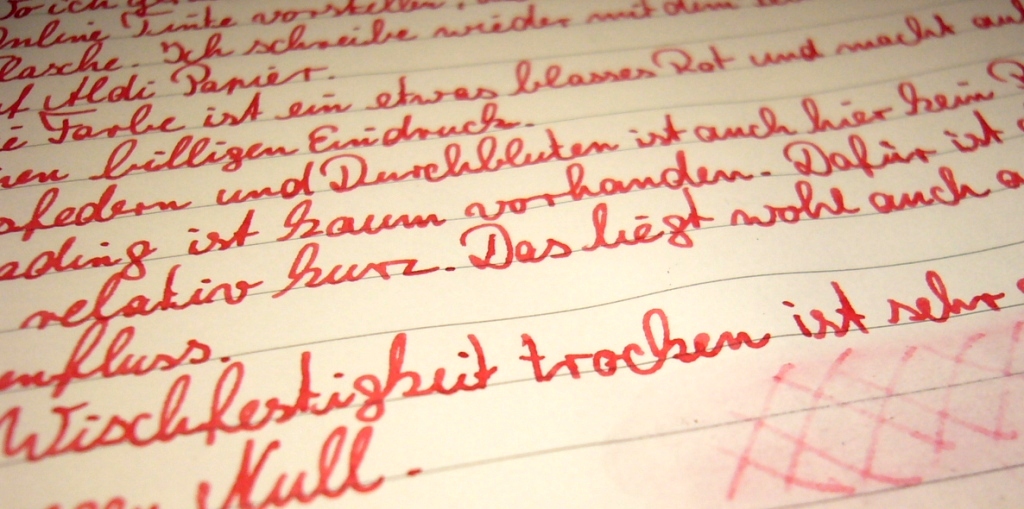 Online Tinte vorstellen
Ich schreibe wieder mit dem
Aldi Papier.
Farbe ist ein etwas blasses Rot und macht
billigen Eindruck.
und Durchbluten ist auch hier kein
ist kaum vorhanden. Dafür ist
relativ kurz. Das liegt wohl auch
fluss.
Wischfestigkeit trocken ist sehr
Null.